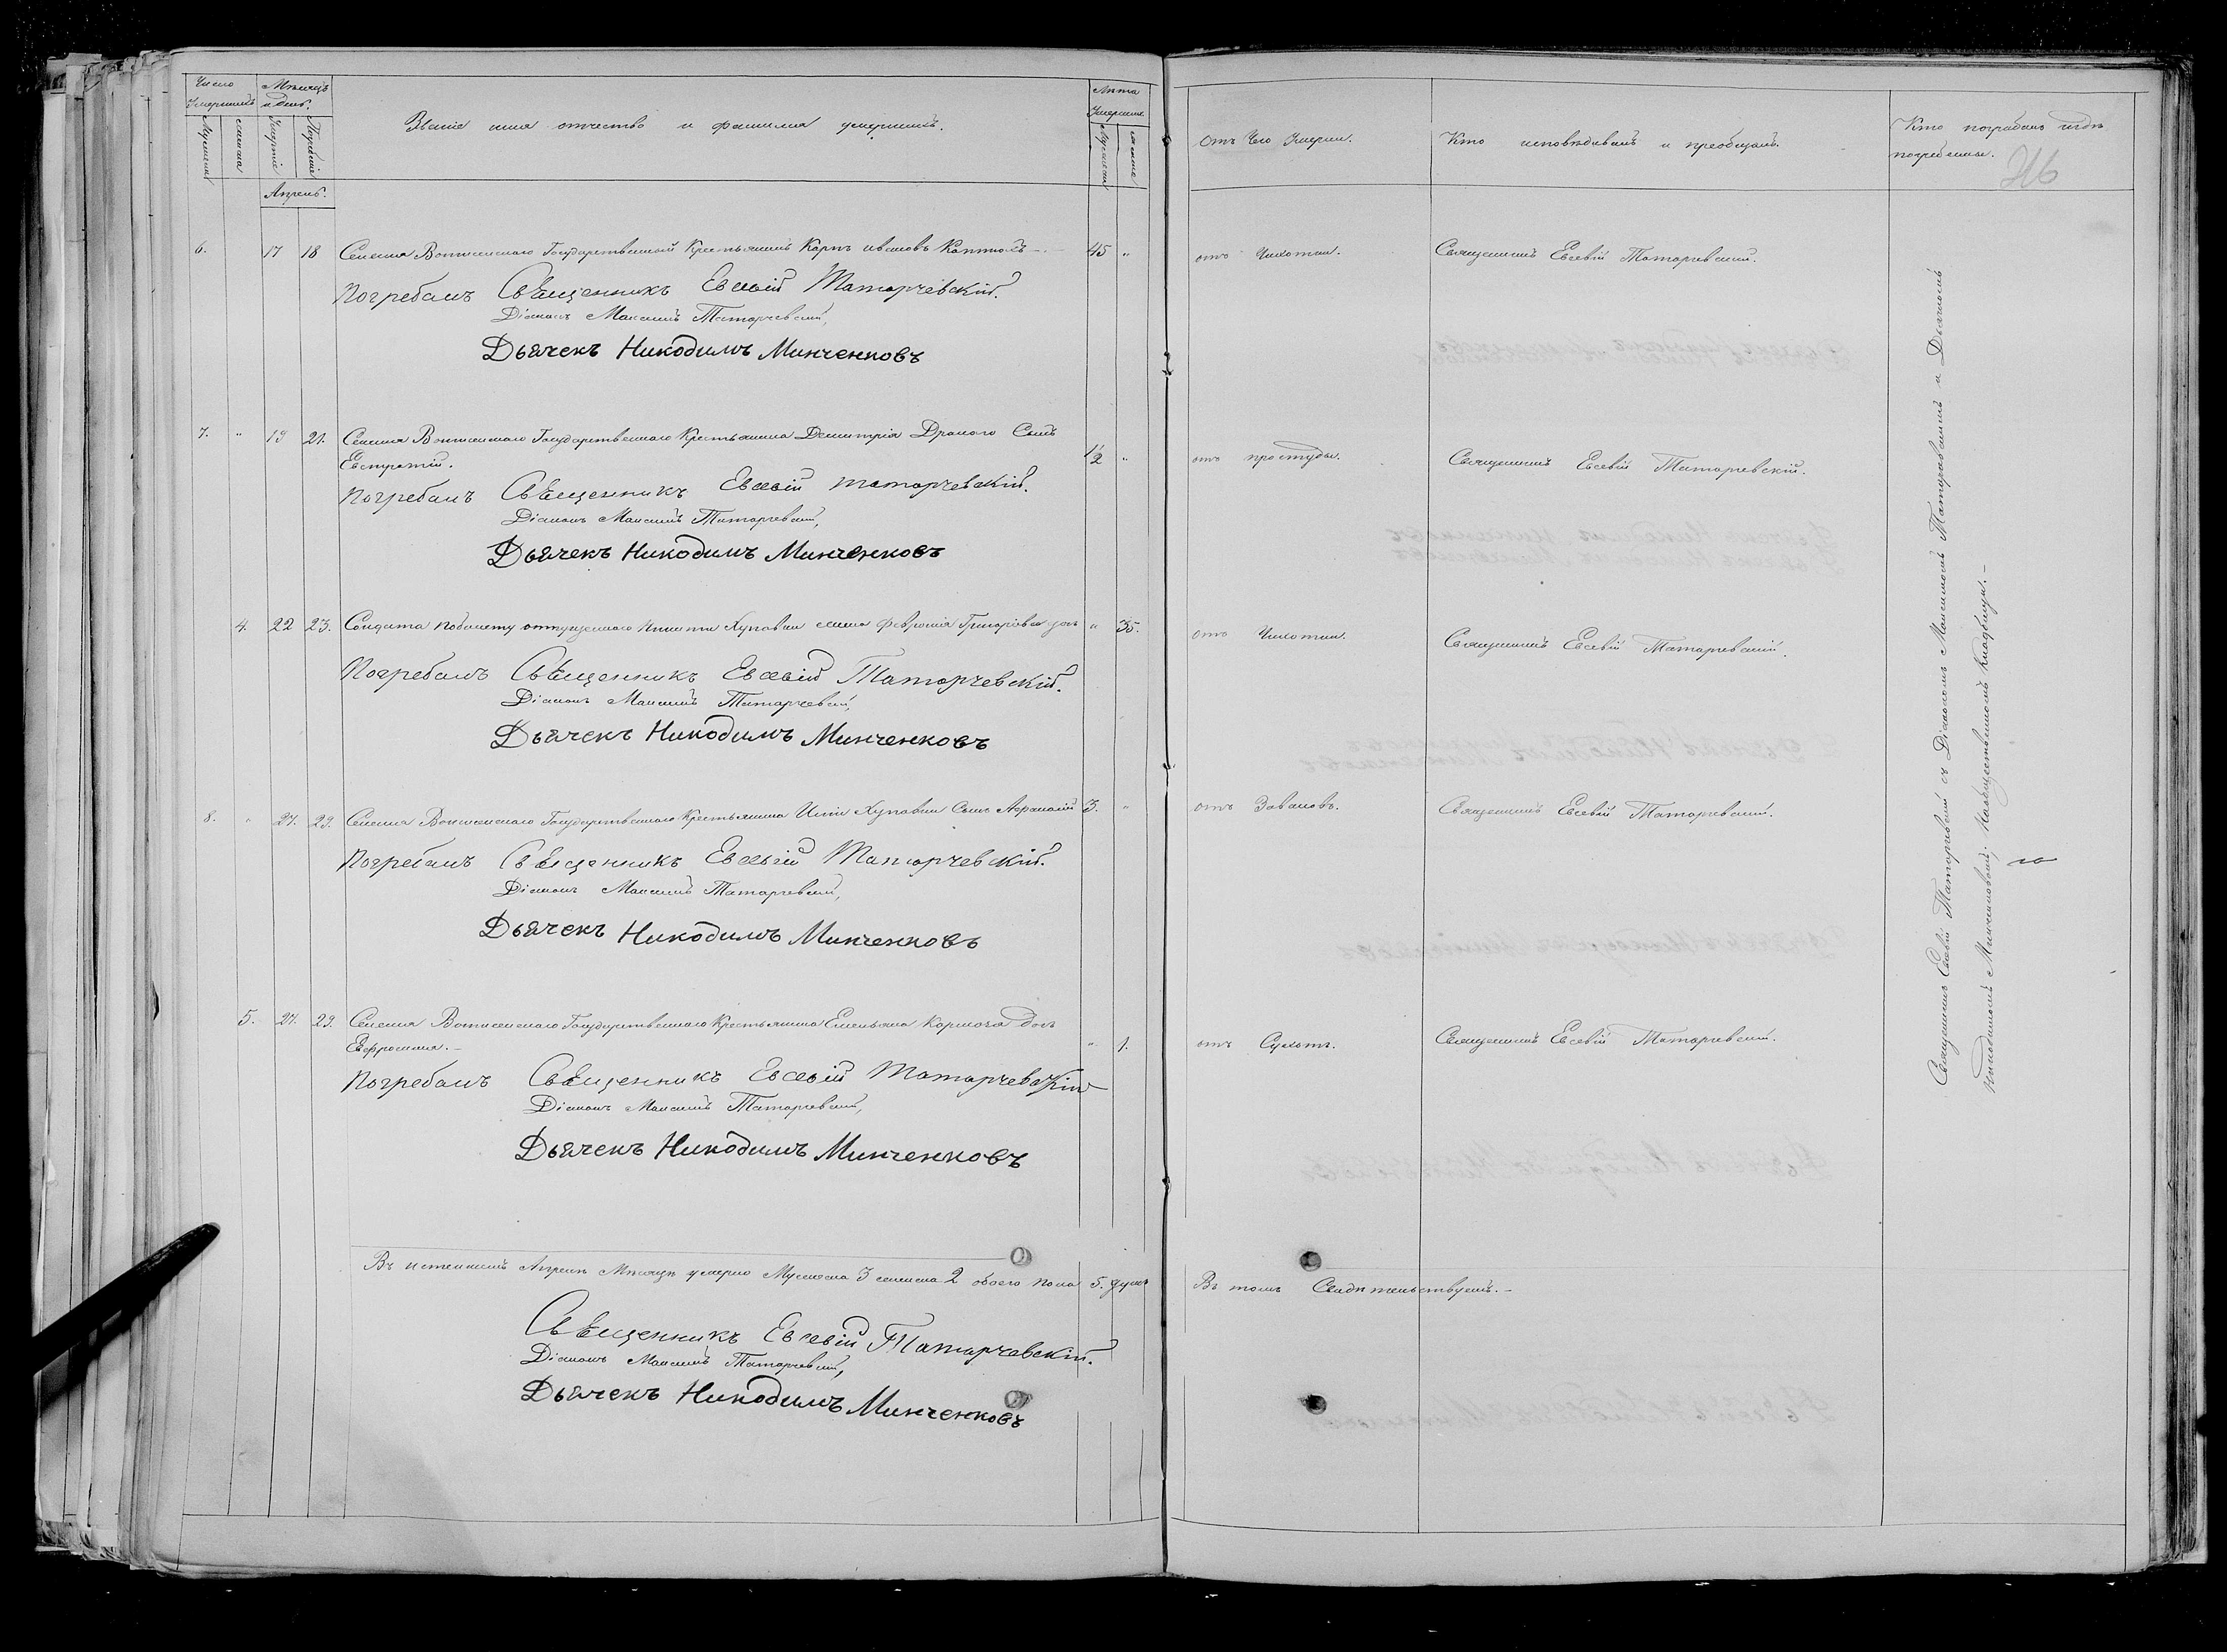 Число Умершихъ
Мѣсяцъ и день.
Званіе имя отчество и фамилія умершихъ.
Лѣта Умершихъ
Мужеска
женска
Смерти
Погребенія
Мужеска
женска
Отъ Чего Умерли.
Кто исповѣдывалъ и пріобщалъ.
Кто погребалъ и гдѣ
погребены.
Апрель.
6. 17 18 Селенія Государственный Крестьянинъ Карпъ Ивановъ 45 „ отъ Чихотки. Священникъ Евсевій Татарчевскій.
Погребалъ Священникъ Евсевій Татарчевскій.
Діаконъ Максимъ Татарчевскій,
Дьячекъ Никодимъ Минченковъ
7. „ 19 21. Селенія Государственнаго Крестьянина Димитрія Сынъ
Евстратій. 1/2 „ отъ простуды. Священникъ Евсевій Татарчевскій.
Погребалъ Священникъ Евсевій Татарчевскій.
Діаконъ Максимъ Татарчевскій,
Дьячекъ Никодимъ Минченковъ
4. 22 23. Солдата побилету отпущеннаго Никиты жена Февронія Григорьева „ 35. отъ Чихотки. Священникъ Евсевій Татарчевскій.
Погребалъ Священникъ Евсевій Татарчевскій.
Діаконъ Максимъ Татарчевскій,
Дьячекъ Никодимъ Минченковъ
8. „ 27. 29. Селенія Государственнаго Крестьянина Сынъ 3. „ отъ Священникъ Евсевій Татарчевскій.
Погребалъ Священникъ Евсевій Татарчевскій.
Діаконъ Максимъ Татарчевскій,
Дьячекъ Никодимъ Минченковъ
5. 27. 29. Селенія Государственнаго Крестьянина Емельяна дочь
Евфросинія. „ 1. отъ Сухотъ. Священникъ Евсевій Татарчевскій.
Погребалъ Священникъ Евсевій Татарчевскій
Діаконъ Максимъ Татарчевскій,
Дьячекъ Никодимъ Минченковъ
Въ истекшемъ Апрелѣ Мѣсяцѣ умерло Мужеска 3 женска 2 обоего пола 5. душъ Въ томъ Свидѣтельствуемъ.
Священникъ Евсевій Татарчевскій.
Діаконъ Максимъ Татарчевскій,
Дьячекъ Никодимъ Минченковъ
Священникъ Евсевій Татарчевскій съ Діакономъ Максимомъ Татарчевскимъ и Дьячкомъ
Никодимомъ Минченковымъ; на общественномъ Кладбищѣ.